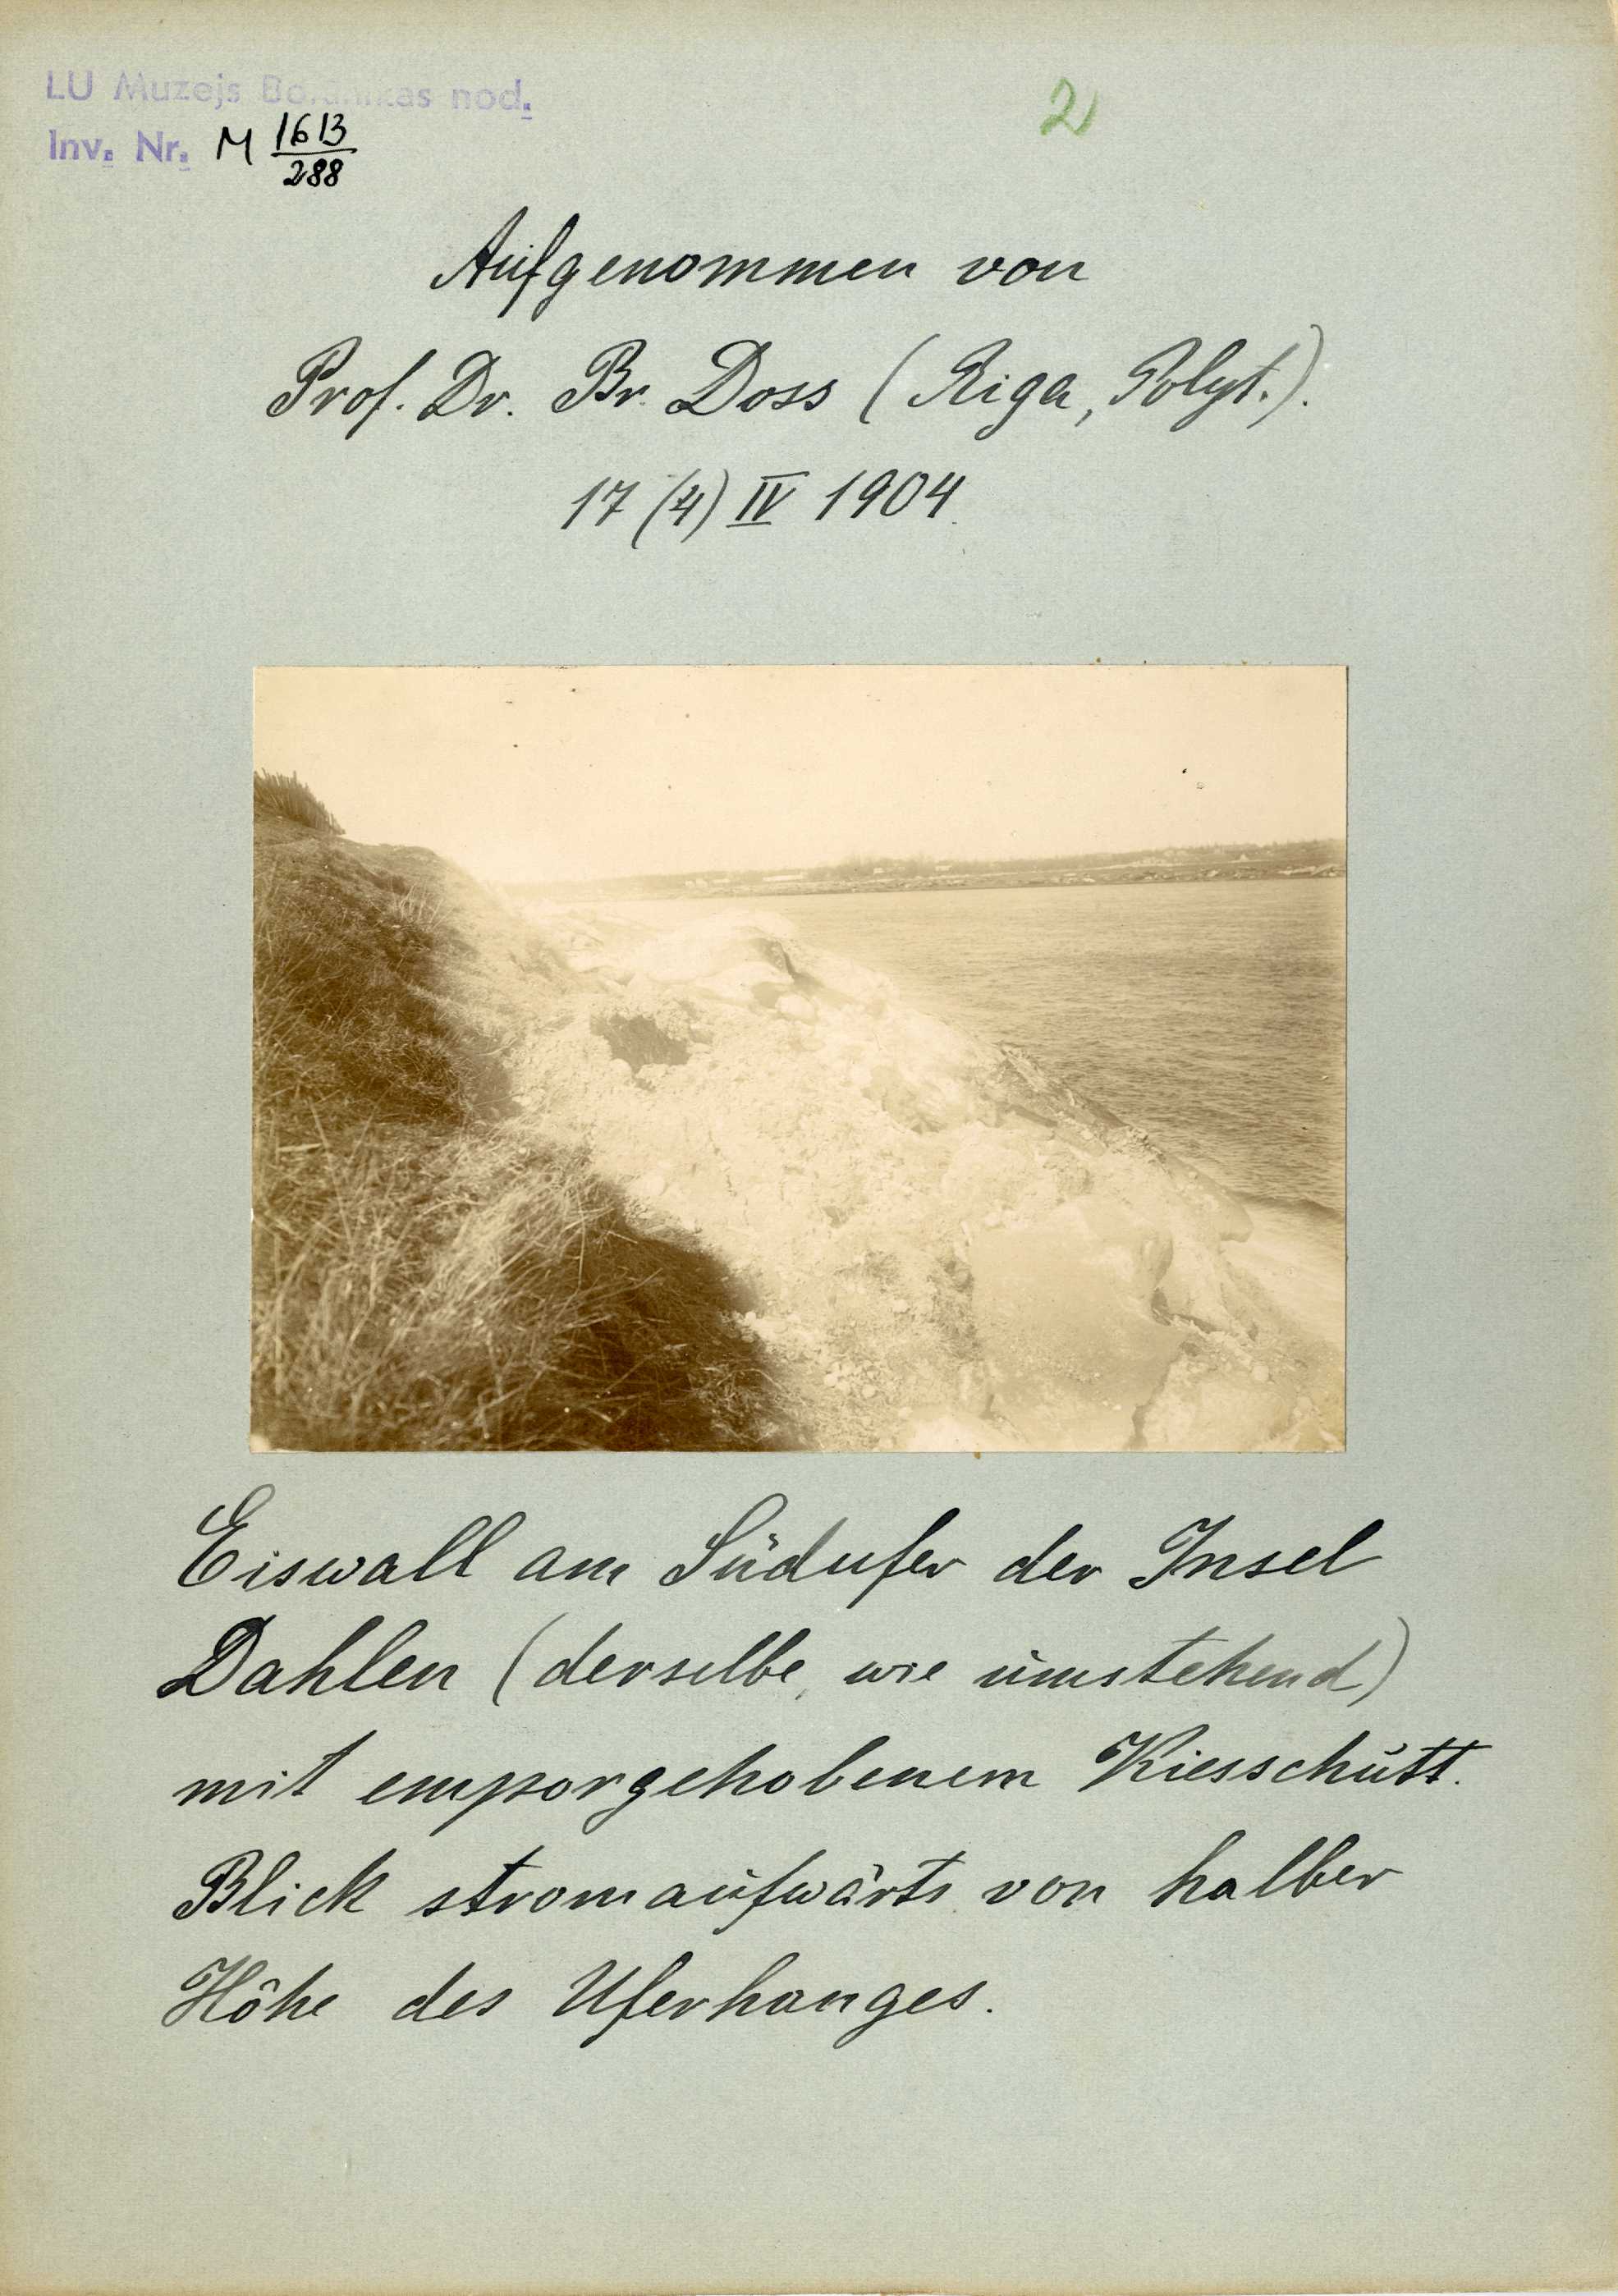 LU Muzejs Botānikas nod.
2
Inv. Nr. M 1613/288
Aufgenommen von
Prof. Dr. Br. Doss (Riga, Polyt.).
17 (4) IV 1904.
Eiswall am Südufer der Insel
Dahlen (derselbe, wie umstehend)
mit emporgehobenem Kiesschutt.
Blick stromaufwärts von halber
Höhe des Uferhanges.